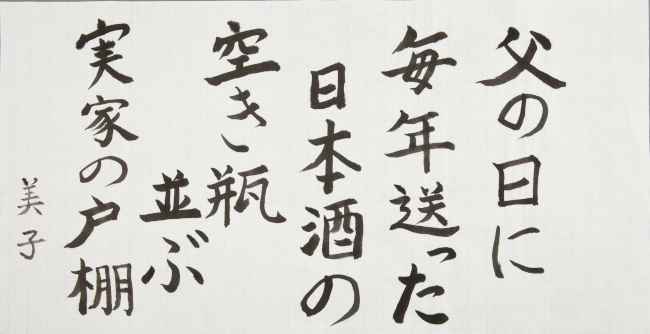 父の日に
毎年送った
日本酒の
空き瓶
並ぶ
実家の戸棚
美子